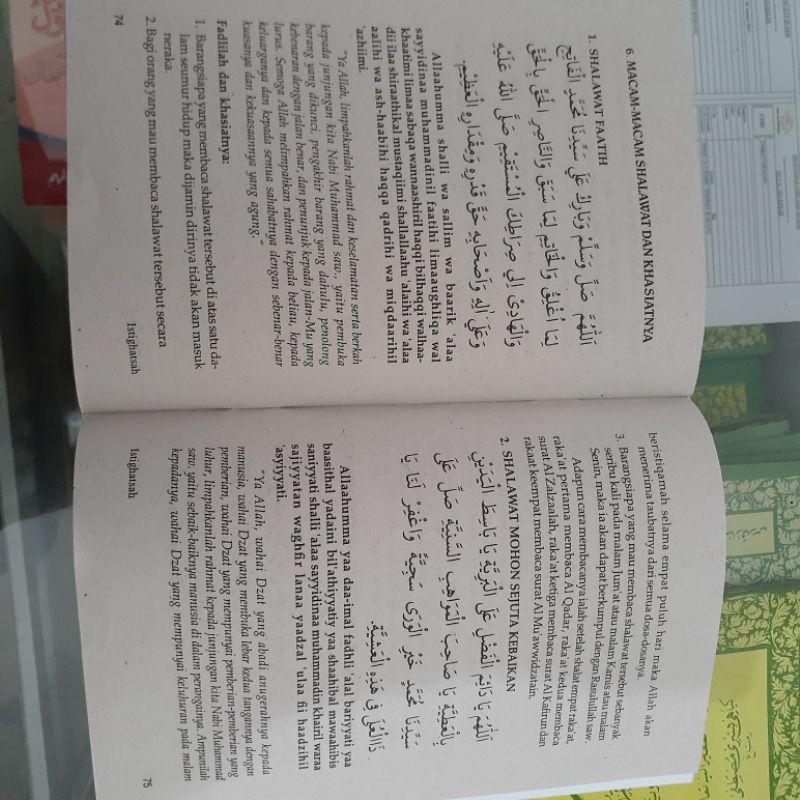 6. MACAM-MACAM SHALAWAT DAN KHASIATNYA
1. SHALAWAT FAATIH
اَللّٰهُمَّ صَلِّ وَسَلِّمْ وَبَارِكْ عَلَى سَيِّدِنَا مُحَمَّدٍ الْفَاتِحِ
لِمَا أُغْلِقَ وَالْخَاتِمِ لِمَا سَبَقَ وَالنَّاصِرِ الْحَقَّ بِالْحَقِّ
وَالْهَادِيْ اِلَى صِرَاطِكَ الْمُسْتَقِيْمِ صَلَّى اللهُ عَلَيْهِ
وَعَلَى اٰلِهِ وَاَصْحَابِهِ حَقَّ قَدْرِهِ وَمِقْدَارِهِ الْعَظِيْمِ.
Allaahumma shalli wa sallim wa baarik 'alaa
sayyidinaa muhammadinil faatihi limaaughliqa wal
khaatimi limaa sabaqa wannaashiril haqqi bilhaqqi walhaa-
dii ilaa shiraathikal mustaqiimi shallallaahu 'alaihi wa 'alaa
aalihi wa ash-haabihi haqqa qadrihi wa miqdaarihil
'azhiimi.
"Ya Allah, limpahkanlah rahmat dan keselamatan serta berkah
kepada junjungan kita Nabi Muhammad saw. yaitu pembuka
barang yang dikunci, pengakhir barang yang dahulu, penolong
kebenaran dengan jalan benar, dan penunjuk kepada jalan-Mu yang
lurus. Semoga Allah melimpahkan rahmat kepada beliau, kepada
keluarganya dan kepada semua sahabatnya dengan sebenar-benar
kuasanya dan kekuasaannya yang agung."
Fadlilah dan khasiatnya:
1. Barangsiapa yang membaca shalawat tersebut di atas satu da-
lam seumur hidup maka dijamin dirinya tidak akan masuk
neraka.
2. Bagi orang yang mau membaca shalawat tersebut secara
74
Istighatsah
beristiqamah selama empat puluh hari maka Allah akan
menerima taubatnya dari semua dosa-dosanya.
3. Barangsiapa yang mau membaca shalawat tersebut sebanyak
seribu kali pada malam Jum'at atau malam Kamis atau malam
Senin, maka ia akan dapat berkumpul dengan Rasulullah saw.
Adapun cara membacanya ialah setelah shalat empat raka'at,
raka'at pertama membaca Al Qadar, raka'at kedua membaca
surat Al Zalzaalah, raka'at ketiga membaca surat Al Kafirun dan
rakaat keempat membaca surat Al Mu'awwidzatain.
2. SHALAWAT MOHON SEJUTA KEBAIKAN
اَللّٰهُمَّ يَا دَائِمَ الْفَضْلِ عَلَى الْبَرِيَّةِ يَا بَاسِطَ الْيَدَيْنِ
بِالْعَطِيَّةِ يَا صَاحِبَ الْمَوَاهِبِ السَّنِيَّةِ صَلِّ عَلَى
سَيِّدِنَا مُحَمَّدٍ خَيْرِ الْوَرَى سَجِيَّةً وَاغْفِرْ لَنَا يَا
ذَاالْعُلَى فِى هٰذِهِ الْعَشِيَّةِ.
Allaahumma yaa daa-imal fadhli 'alal bariyyati yaa
baasithal yadaini bil'athiyyatiy yaa shaahibal mawaahibis
saniyyati shalli 'alaa sayyidinaa muhammadin khairil waraa
sajiyyatan waghfir lanaa yaadzal 'ulaa fii haadzihil
'asyiyyati.
"Ya Allah, wahai Dzat yang abadi anugerahnya kepada
manusia, wahai Dzat yang membuka lebar kedua tangannya dengan
pemberian, wahai Dzat yang mempunyai pemberian-pemberian yang
luhur, limpahkanlah rahmat kepada junjungan kita Nabi Muhammad
saw. yaitu sebaik-baiknya manusia di dalam perangainya. Ampunilah
kepadanya, wahai Dzat yang mempunyai keluhuran pada malam
Istighatsah
75